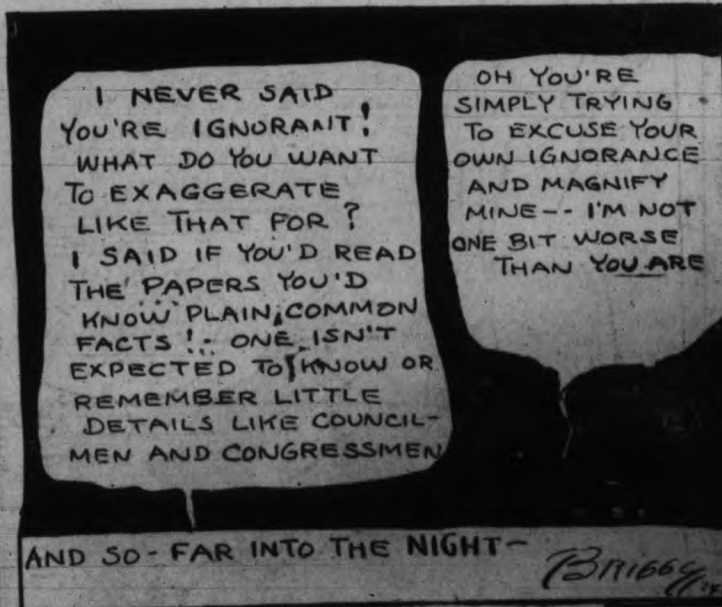 I NEVER SAID
YOU'RE IGNORANT!
WHAT DO YOU WANT
TO EXAGGERATE
LIKE THAT FOR?
I SAID IF YOU'D READ
THE PAPERS YOU'D
KNOW PLAIN, COMMON
FACTS! - ONE ISN'T
EXPECTED TO KNOW OR
REMEMBER LITTLE
DETAILS LIKE COUNCIL-
MEN AND CONGRESSMEN
OH YOU'RE
SIMPLY TRYING
TO EXCUSE YOUR
OWN IGNORANCE
AND MAGNIFY
MINE-- I'M NOT
ONE BIT WORSE
THAN YOU ARE
AND SO - FAR INTO THE NIGHT -
BRIGGS